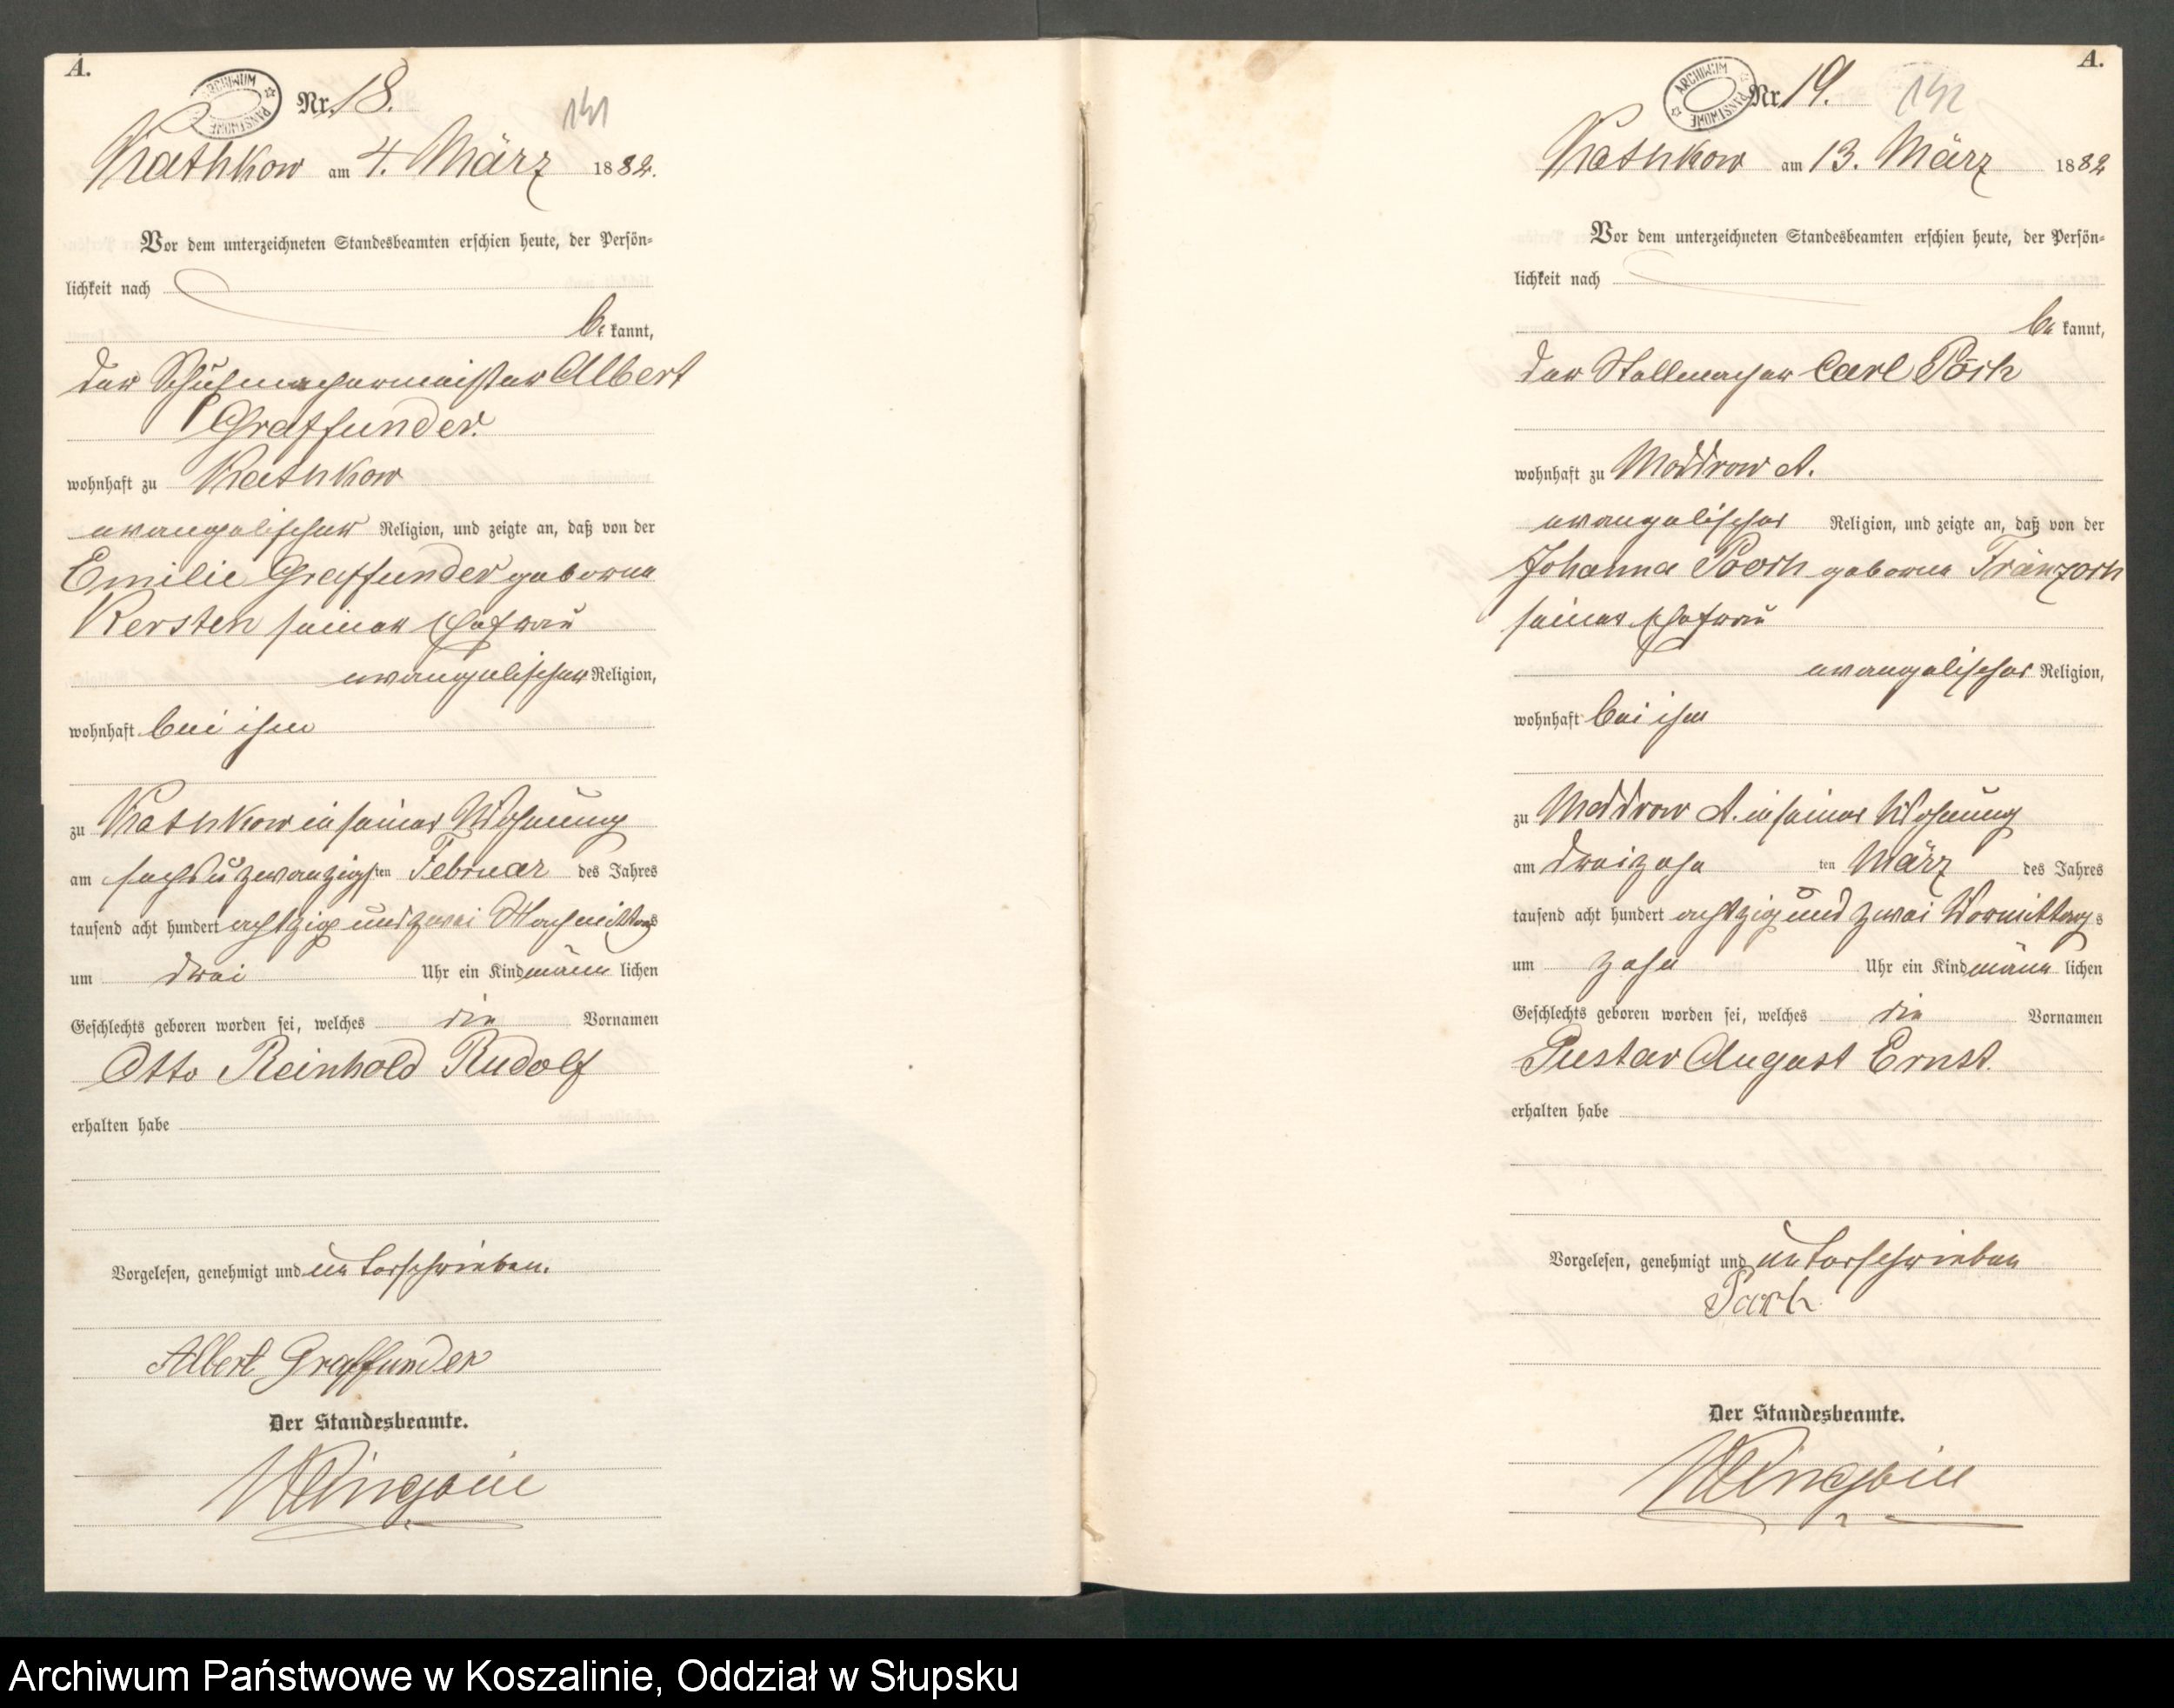 A.
ARCHIWUM PAŃSTWOWE
Nr. 18.
141
Kathkow am 4. März 1882.
Vor dem unterzeichneten Standesbeamten erschien heute, der Persön-
lichkeit nach
be kannt,
der Schuhmachermeister Albert
Graffunder.
wohnhaft zu Kathkow
evangelischer Religion, und zeigte an, daß von der
Emilie Graffunder geborene
Kersten seiner Ehefrau
evangelischer Religion,
wohnhaft bei ihm
zu Kathkow in seiner Wohnung
am sechsuzwanzigsten Februar des Jahres
tausend acht hundert achtzig und zwei Nachmittags
um drei Uhr ein Kind männlichen
Geschlechts geboren worden sei, welches die Vornamen
Otto Reinhold Rudolf
erhalten habe
Vorgelesen, genehmigt und unterschrieben.
Albert Graffunder
Der Standesbeamte.
A.
ARCHIWUM PAŃSTWOWE
Nr. 19.
142
Kathkow am 13. März 1882
Vor dem unterzeichneten Standesbeamten erschien heute, der Persön-
lichkeit nach
be kannt,
der Stellmacher Carl
wohnhaft zu Moddrow A.
evangelischer Religion, und zeigte an, daß von der
Johanna geborene
seiner Ehefrau
evangelischer Religion,
wohnhaft bei ihm
zu Moddrow A. in seiner Wohnung
am dreizehn ten März des Jahres
tausend acht hundert achtzig und zwei Vormittags
um zehn Uhr ein Kind männlichen
Geschlechts geboren worden sei, welches die Vornamen
Gustav August Ernst.
erhalten habe
Vorgelesen, genehmigt und unterschrieben
Der Standesbeamte.
Archiwum Państwowe w Koszalinie, Oddział w Słupsku